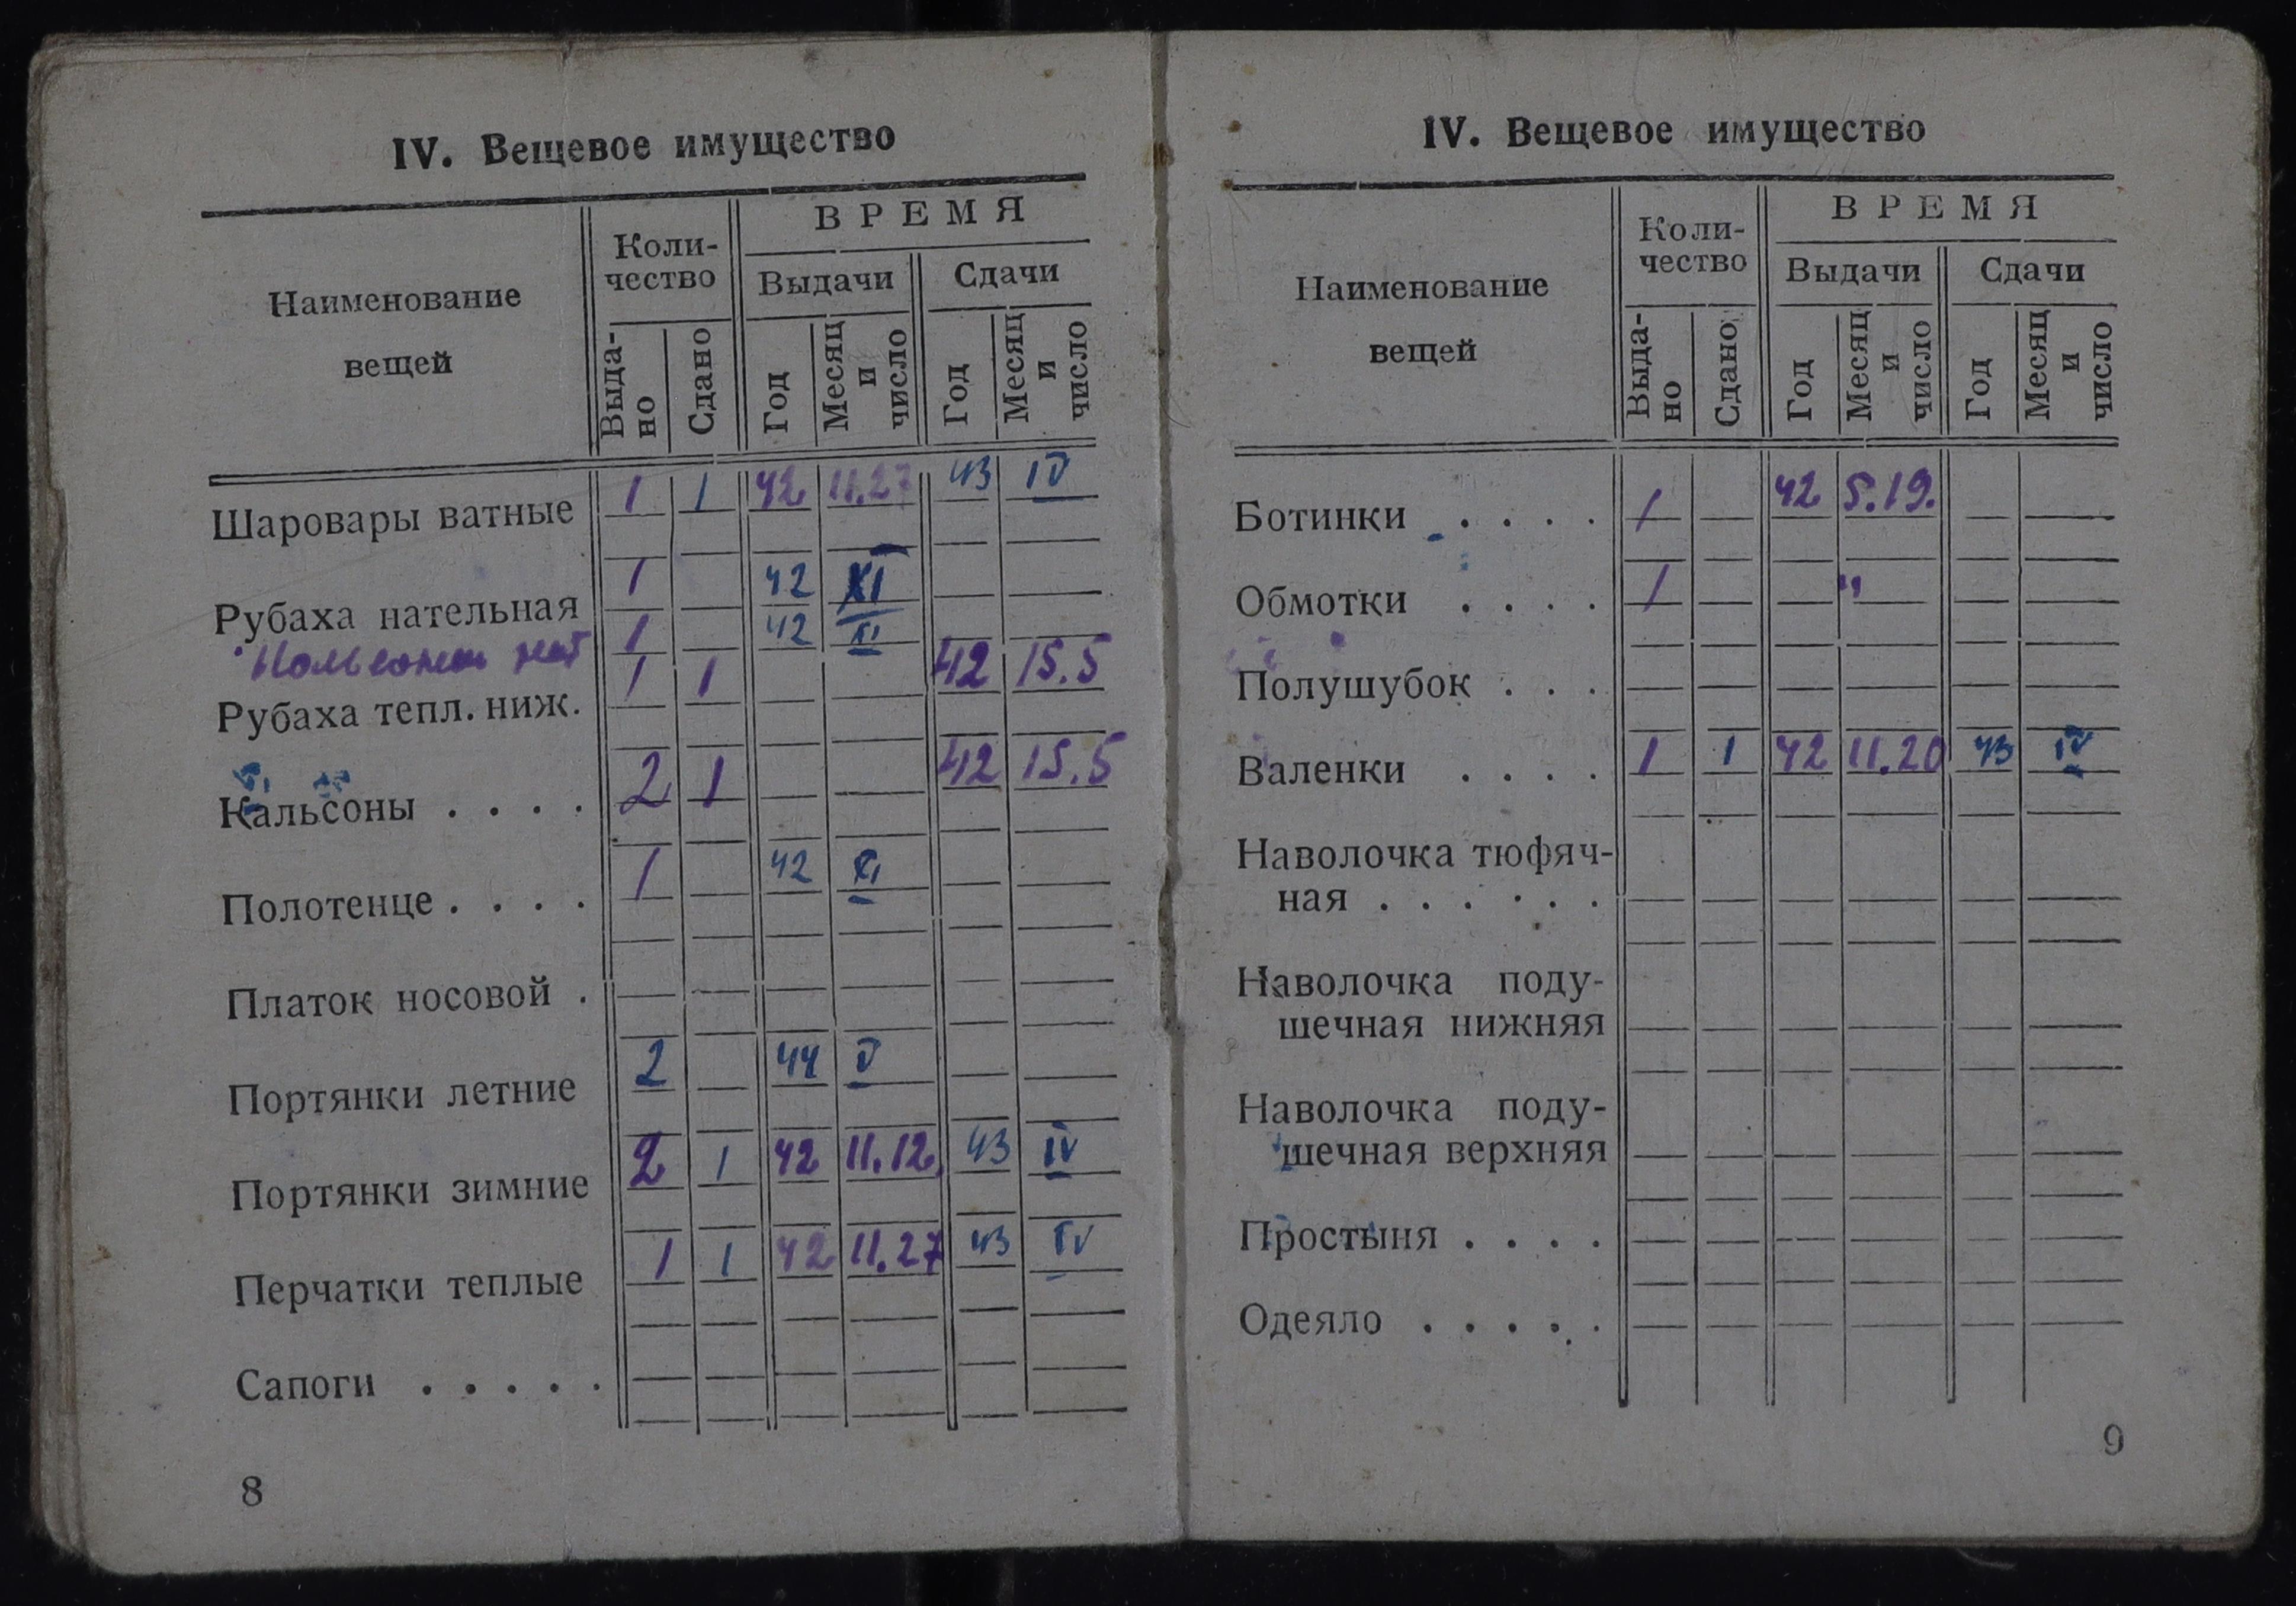 IV. Вещевое имущество
Наименование вещей
Коли-
чество
ВРЕМЯ
Выдачи
Сдачи
Выда-
но
Сдано
Год
Месяц
и
число
Год
Месяц
и
число
Шаровары ватные 1 1 42 11.27 43 IV
Рубаха нательная 1 42 XI
1 42 XI
Рубаха тепл. ниж. 1 1 42 15.5
Кальсоны . . . . 2 1 42 15.5
Полотенце . . . . 1 42 XI
Платок носовой .
Портянки летние 2 44 V
Портянки зимние 2 1 42 11.12. 43 IV
Перчатки теплые 1 1 42 11.27 43 IV
Сапоги . . . . .
8
IV. Вещевое имущество
Наименование вещей
Коли-
чество
ВРЕМЯ
Выдачи
Сдачи
Выда-
но
Сдано
Год
Месяц
и
число
Год
Месяц
и
число
Ботинки . . . . 1 42 5.19.
Обмотки . . . . 1 "
Полушубок . . .
Валенки . . . . 1 1 42 11.20 43 IV
Наволочка тюфяч-
ная . . . . . .
Наволочка поду-
шечная нижняя
Наволочка поду-
шечная верхняя
Простыня . . . .
Одеяло . . . . .
9